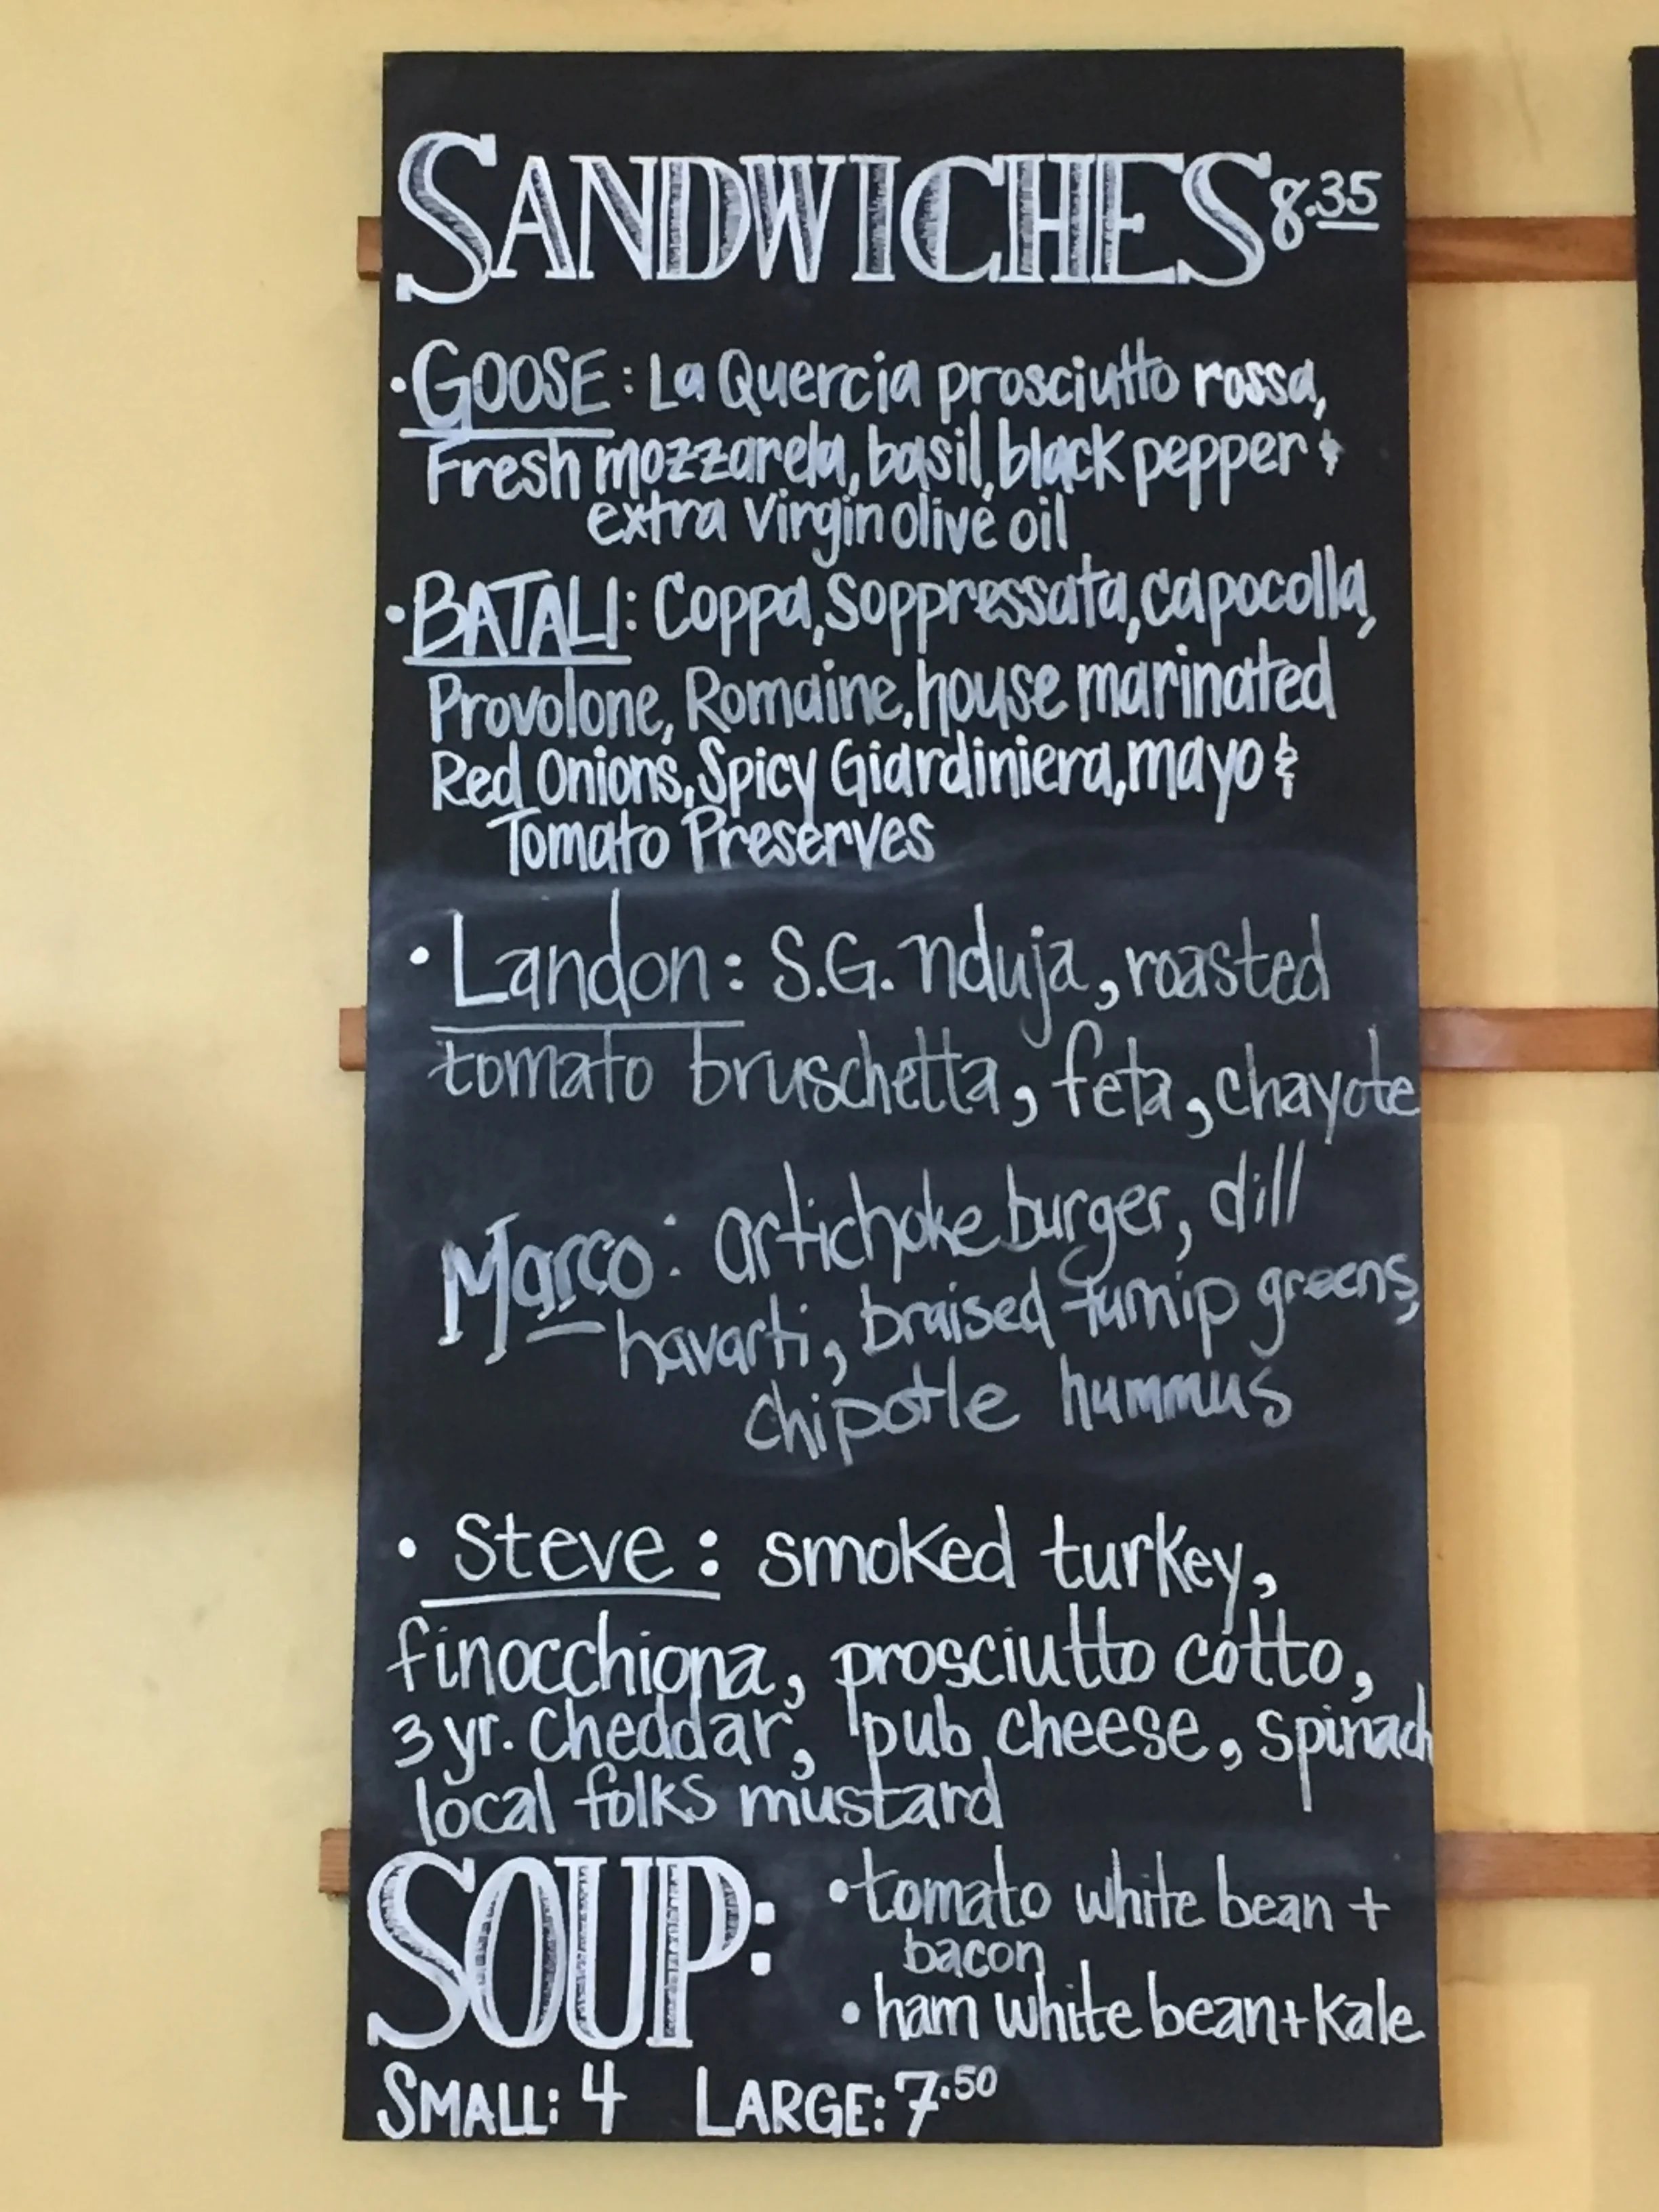 SANDWICHES 8.35
• GOOSE: La Quercia prosciutto rossa,
Fresh mozzarela, basil, black pepper &
extra virgin olive oil
• BATALI: Coppa, Soppressata, capocolla,
Provolone, Romaine, house marinated
Red Onions, Spicy Giardiniera, mayo &
Tomato Preserves
• Landon: S.G. nduja, roasted
tomato bruschetta, feta, chayote
Marco: artichoke burger, dill
havarti, braised turnip greens,
chipotle hummus
• Steve: smoked turkey,
finocchiona, prosciutto cotto,
3 yr. cheddar, pub cheese, spinach
local folks mustard
SOUP: • tomato white bean +
bacon
• ham white bean + kale
SMALL: 4 LARGE: 7.50